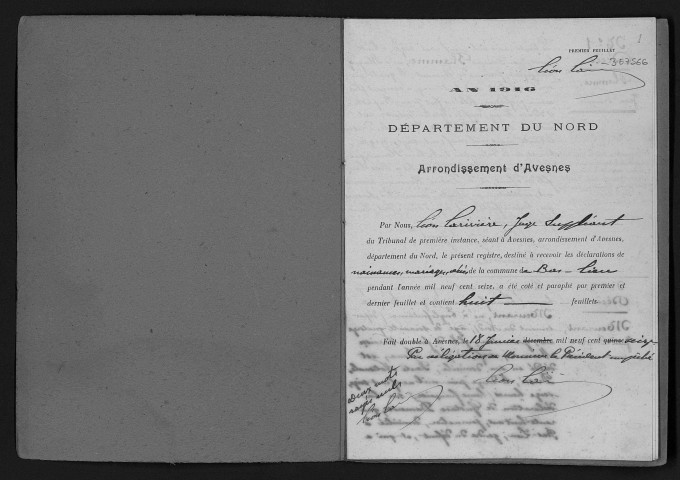 1
PREMIER FEUILLET
307566
AN 1916
DÉPARTEMENT DU NORD
Arrondissement d'Avesnes
Par Nous, Léon Larivière, Juge Suppléant
du Tribunal de première instance, séant à Avesnes, arrondissement d'Avesnes,
département du Nord, le présent registre, destiné à recevoir les déclarations de
naissances, mariages, décès de la commune de Bas-Lieu
pendant l'année mil neuf cent seize, a été coté et paraphé par premier et
dernier feuillet et contient huit feuillets.
Fait double à Avesnes, le 18 Janvier décembre mil neuf cent quinze seize
Par délégation de Monsieur le Président empêché
Deux mots
rayés nuls